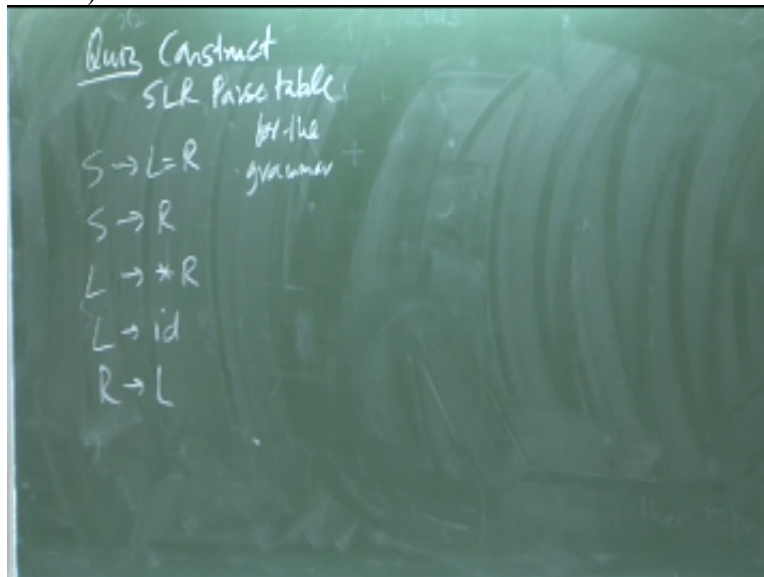 Quiz Construct
SLR Parse table
for the
grammar
S → L = R
S → R
L → * R
L → id
R → L